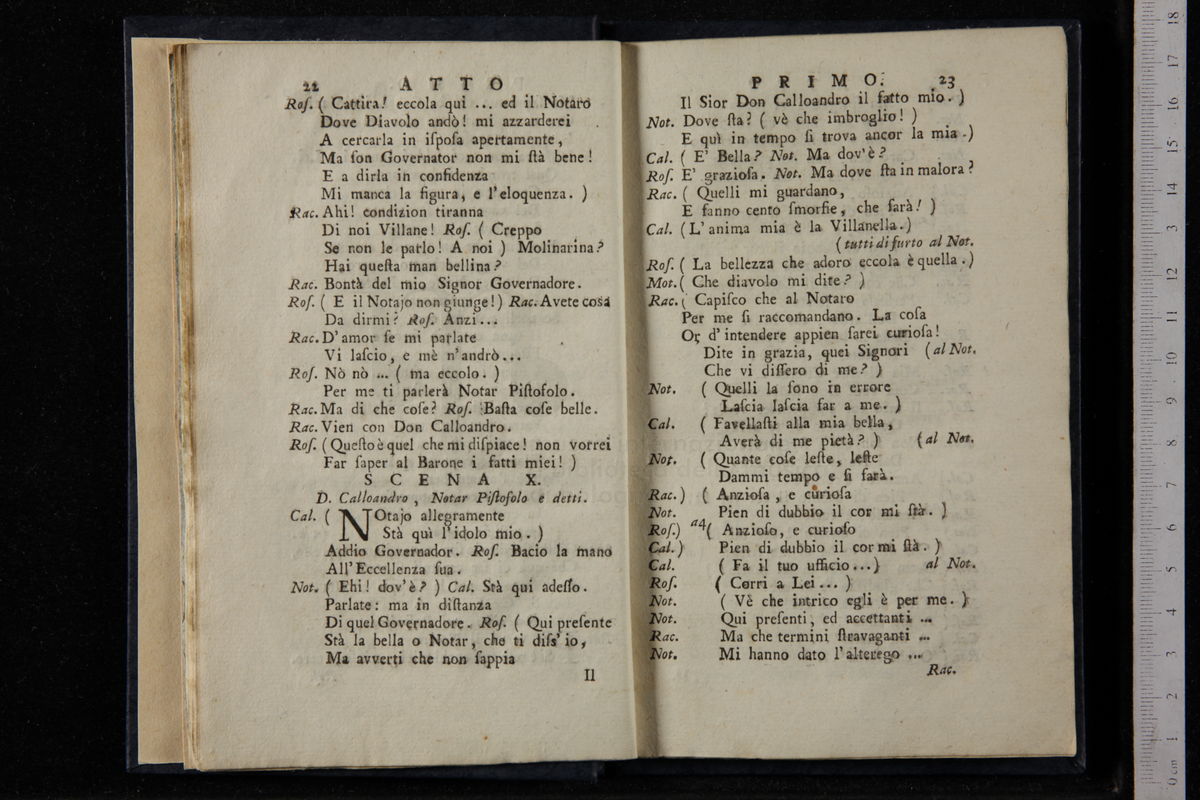 22 ATTO
Roſ. ( Cattira! eccola qui ... ed il Notaro
Dove Diavolo andò! mi azzarderei
A cercarla in iſpoſa apertamente,
Ma ſon Governator non mi ſtà bene!
E a dirla in confidenza
Mi manca la figura, e l'eloquenza. )
Rac. Ahi! condizion tiranna
Di noi Villane! Roſ. ( Creppo
Se non le parlo! A noi ) Molinarina?
Hai queſta man bellina?
Rac. Bontà del mio Signor Governadore.
Roſ. ( E il Notajo non giunge!) Rac. Avete cosa
Da dirmi? Roſ. Anzi...
Rac. D'amor ſe mi parlate
Vi laſcio, e mè n'andrò...
Roſ. Nò nò ... ( ma eccolo. )
Per me ti parlerà Notar Piſtofolo.
Rac. Ma di che coſe? Roſ. Baſta coſe belle.
Rac. Vien con Don Calloandro.
Roſ. (Queſto è quel che mi diſpiace! non vorrei
Far ſaper al Barone i fatti miei! )
SCENA X.
D. Calloandro, Notar Piſtofolo e detti.
Cal. ( NOtajo allegramente
Stà quì l'idolo mio. )
Addio Governador. Roſ. Bacio la mano
All'Eccellenza ſua.
Not. ( Ehi! dov'è? ) Cal. Stà qui adeſſo.
Parlate: ma in diſtanza
Di quel Governadore. Roſ. ( Qui preſente
Stà la bella o Notar, che ti diſs'io,
Ma avverti che non ſappia
Il
PRIMO. 23
Il Sior Don Calloandro il fatto mio. )
Not. Dove ſta? ( vè che imbroglio! )
E quì in tempo ſi trova ancor la mia.)
Cal. ( E' Bella? Not. Ma dov'è?
Roſ. E' grazioſa. Not. Ma dove ſta in malora?
Rac. ( Quelli mi guardano,
E fanno cento ſmorfie, che ſarà! )
Cal. (L'anima mia è la Villanella.)
(tutti di furto al Not.
Roſ. ( La bellezza che adoro eccola è quella.)
Mot. ( Che diavolo mi dite? )
Rac. ( Capiſco che al Notaro
Per me ſi raccomandano. La coſa
Or d'intendere appien ſarei curioſa!
Dite in grazia, quei Signori (al Not.
Che vi diſſero di me? )
Not. ( Quelli la ſono in errore
Laſcia laſcia far a me. )
Cal. ( Favellaſti alla mia bella,
Averà di me pietà? ) (al Not.
Not. ( Quante coſe leſte, leſte
Dammi tempo e ſi farà.
Rac. ) ( Anzioſa, e curioſa
Not. Pien di dubbio il cor mi ſtà. )
Roſ.) a4( Anzioſo, e curioſo
Cal.) Pien di dubbio il cor mi ſtà. )
Cal. ( Fa il tuo ufficio...) al Not.
Roſ. ( Corri a Lei... )
Not. ( Vè che intrico egli è per me. )
Not. Qui preſenti, ed accettanti ...
Rac. Ma che termini ſtravaganti ...
Not. Mi hanno dato l'alterego ...
Rac.